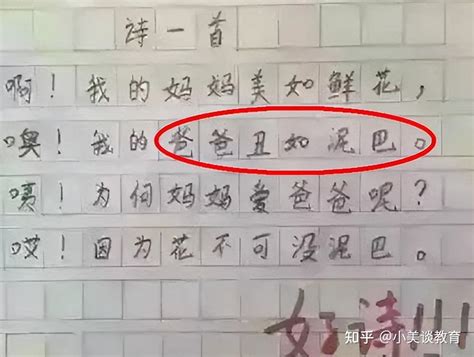 诗一首
啊！我的妈妈美如鲜花，
噢！我的爸爸丑如泥巴。
咦！为何妈妈爱爸爸呢？
哎！因为花不可没泥巴。
好诗!!!
知乎 @小美谈教育